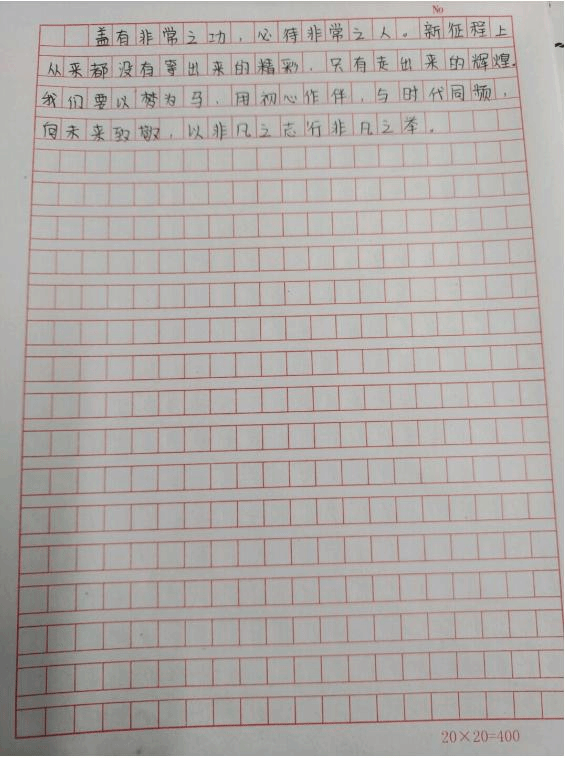 No
盖有非常之功，必待非常之人。新征程上
从来都没有等出来的精彩，只有走出来的辉煌.
我们要以梦为马，用初心作伴，与时代同频，
向未来致敬，以非凡之志行非凡之举。
20×20=400